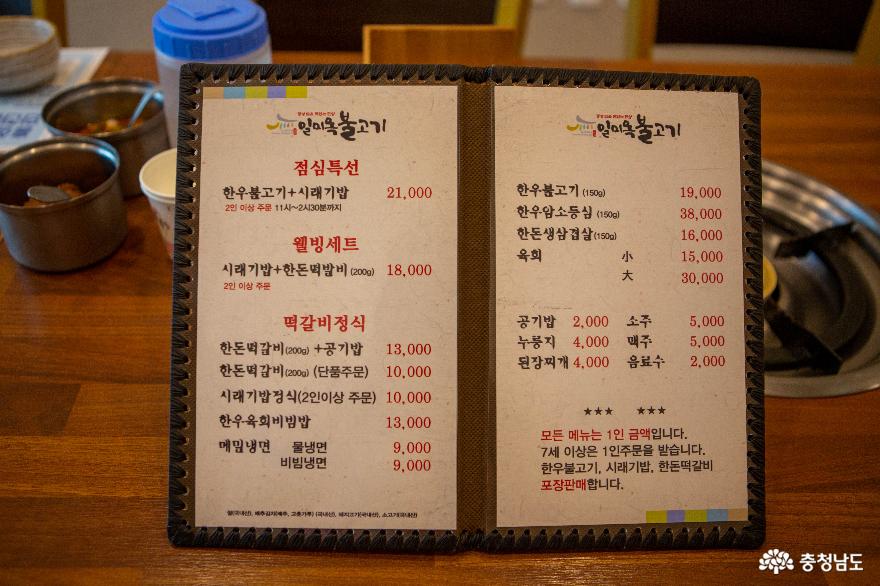 일미옥불고기
점심특선
한우불고기+시래기밥 21,000
2인 이상 주문 11시~2시30분까지
웰빙세트
시래기밥+한돈떡밥비 (200g) 18,000
2인 이상 주문
떡갈비정식
한돈떡갈비(200g) +공기밥 13,000
한돈떡갈비(200g) (단품주문) 10,000
시래기밥정식(2인이상 주문) 10,000
한우육회비빔밥 13,000
메밀냉면 물냉면 9,000
비빔냉면 9,000
쌀(국내산), 배추김치(배추, 고춧가루) (국내산), 돼지고기(국내산), 소고기(국내산)
일미옥불고기
한우불고기 (150g) 19,000
한우암소등심 (150g) 38,000
한돈생삼겹살(150g) 16,000
육회 小 15,000
大 30,000
공기밥 2,000 소주 5,000
누룽지 4,000 맥주 5,000
된장찌개 4,000 음료수 2,000
★★★ ★★★
모든 메뉴는 1인 금액입니다.
7세 이상은 1인주문을 받습니다.
한우불고기, 시래기밥, 한돈떡갈비
포장판매합니다.
충청남도